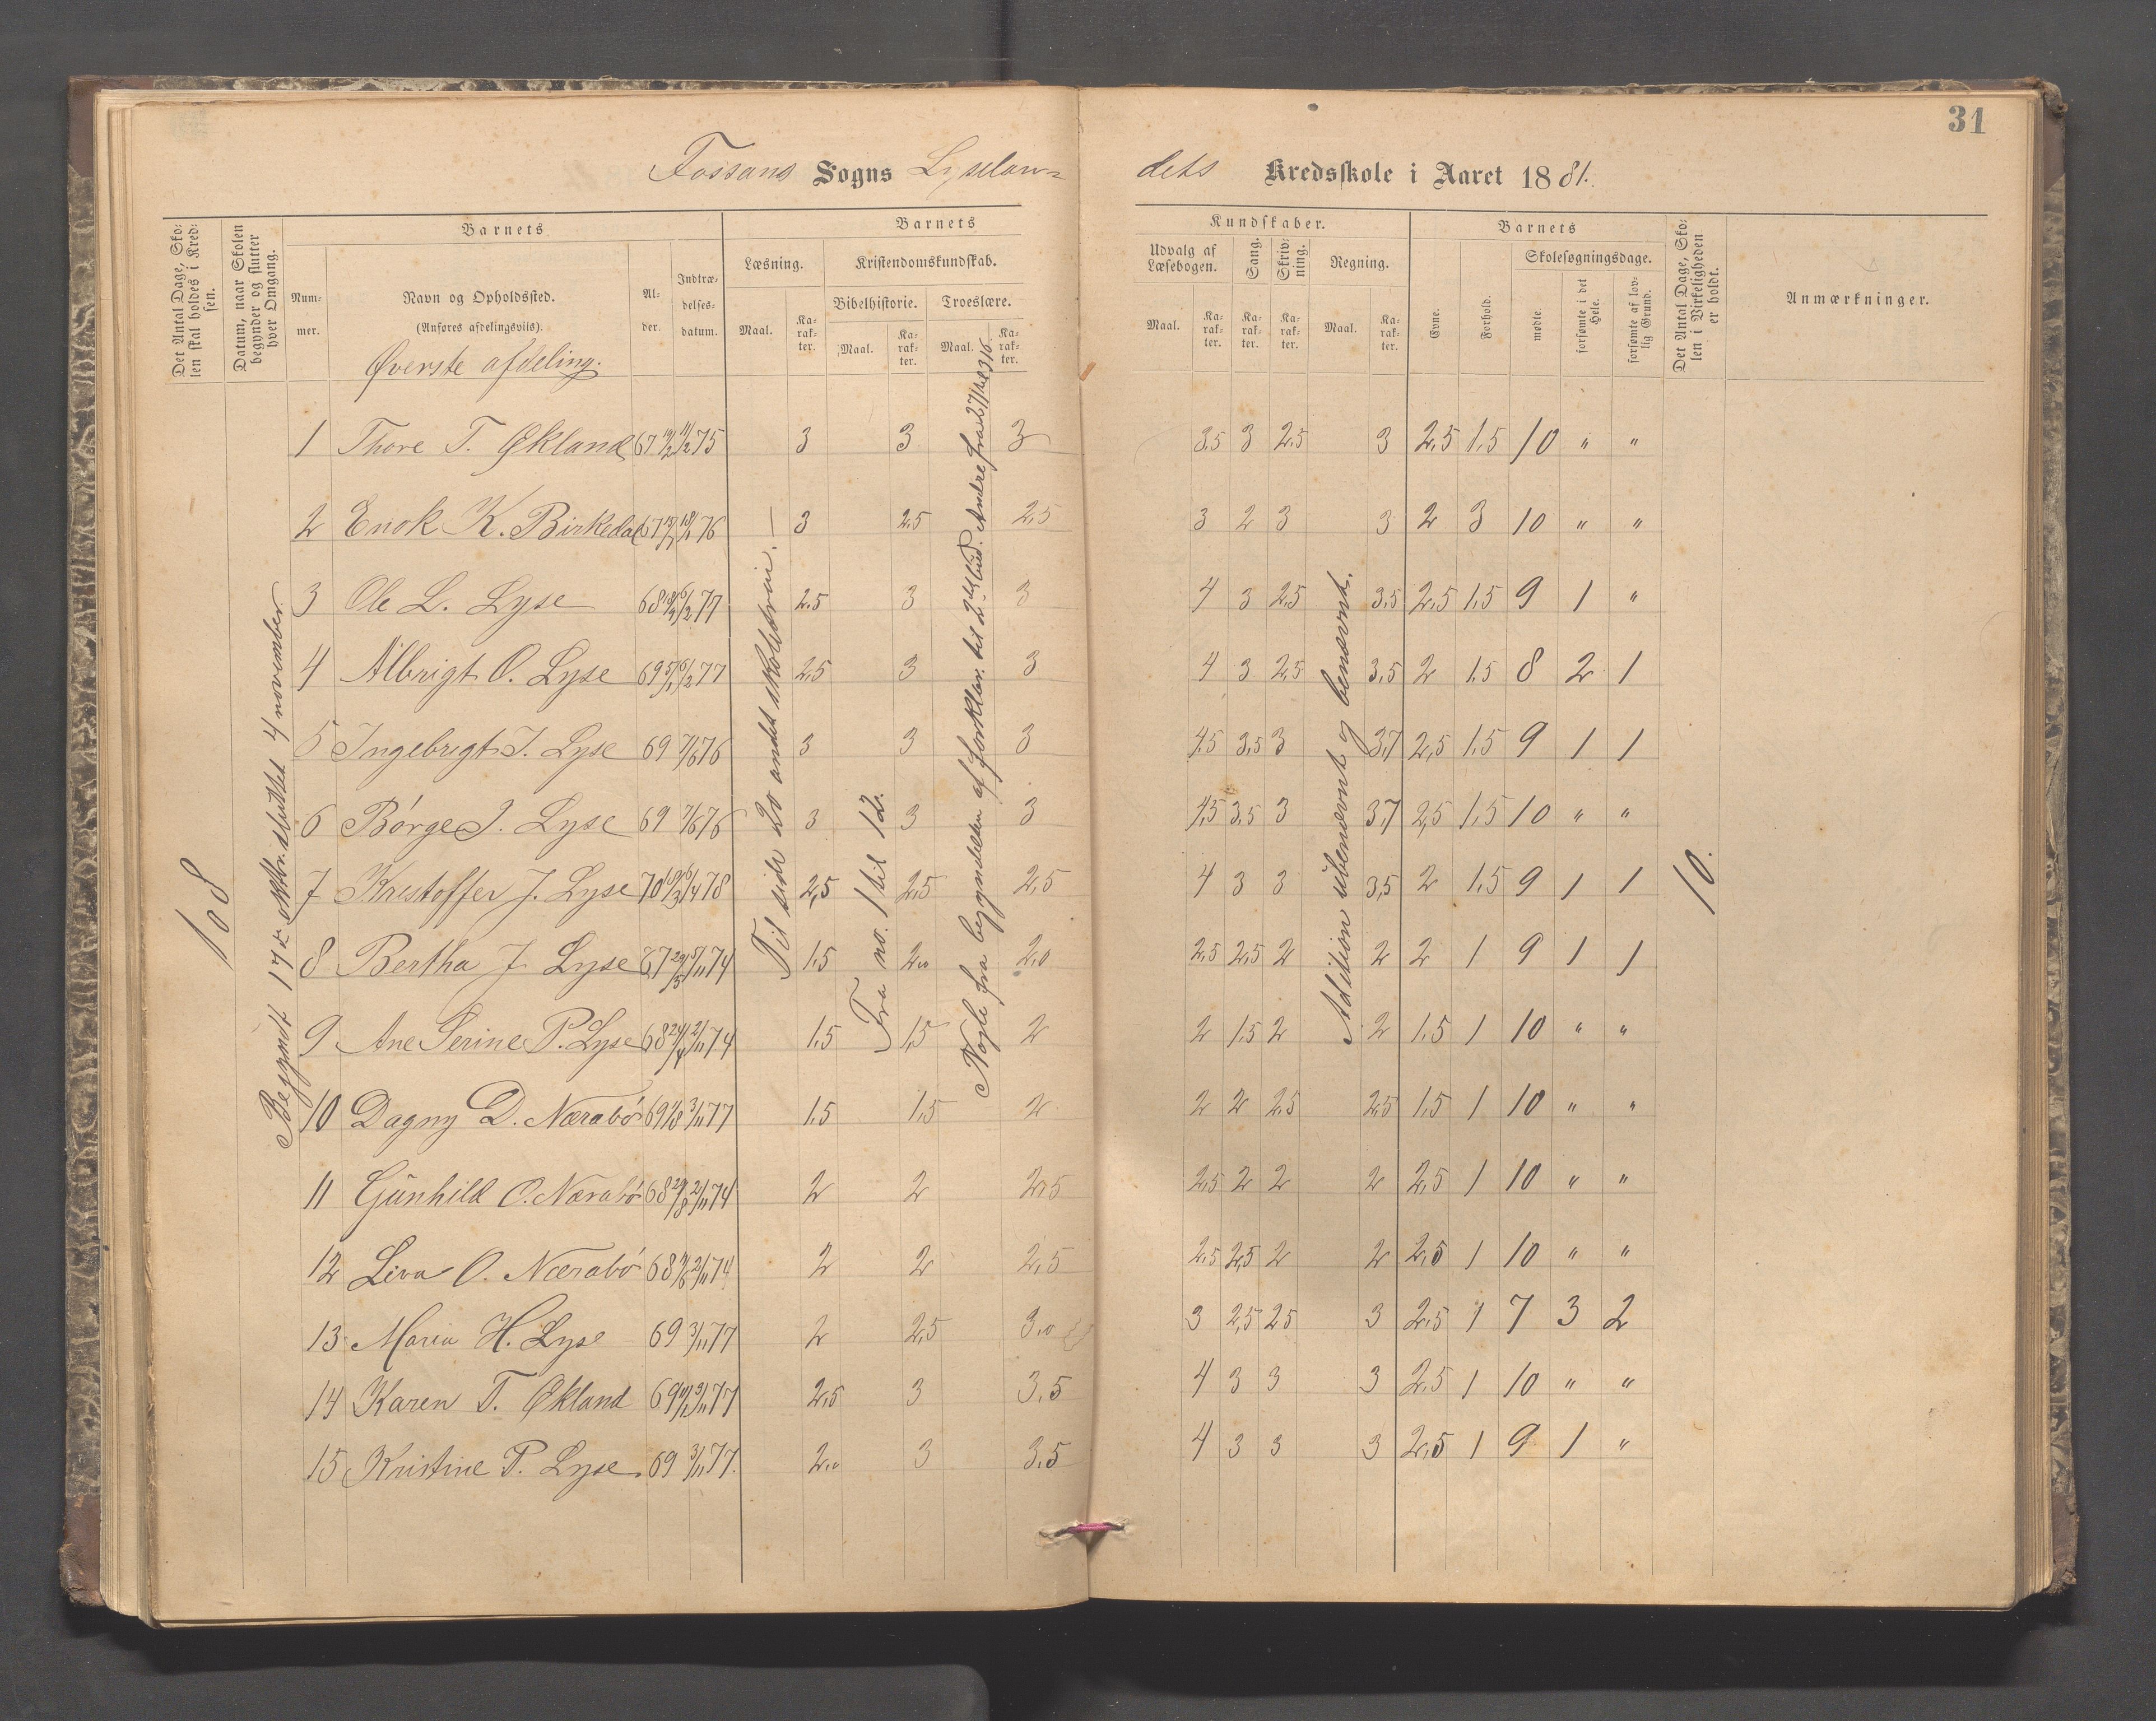 31
Fossans Sogns Lyselan=
dets Kredsskole i Aaret 1881.
Det Antal Dage, Sko-
len skal holdes i Kred-
sen.
Datum, naar Skolen
begynder og slutter
hver Omgang.
Barnets
Num-
mer.
Navn og Opholdssted.
(Anføres afdelingsviis).
Al-
der.
Indtræ-
delses-
datum.
Barnets
Læsning.
Maal.
Ka-
rak-
ter.
Kristendomskundskab.
Bibelhistorie.
Maal.
Ka-
rak-
ter.
Troeslære.
Maal.
Ka-
rak-
ter.
Kundskaber.
Udvalg af
Læsebogen.
Maal.
Ka-
rak-
ter.
Sang.
Ka-
rak-
ter.
Skriv-
ning.
Ka-
rak-
ter.
Regning.
Maal.
Ka-
rak-
ter.
Barnets
Evne.
Forhold.
Skolesøgningsdage.
mødte.
forsømte i det
Hele.
forsømte af lov-
lig Grund.
Det Antal Dage, Sko-
len i Virkeligheden
er holdt.
Anmærkninger.
Øverste afdeling.
108
Begyndt 17de oktbr. sluttet 4 november.
Til side 20 andet skoletrin. —
Fra no. 1 til 12.
Nogle fra begyndelsen af forklar. til 2det bud. Andre fra
Adition ubenævnt og benævnt.
10.
1 Thore T. Økland 67 11/2 75 3 3 3 3,5 3 2,5 3 2,5 1,5 10 " "
2 Enok K. Birkedal 67 76 3 2,5 2,5 3 2 3 3 2 3 10 " "
3 Ole L. Lyse 68 6/2 77 2,5 3 3 4 3 2,5 3,5 2,5 1,5 9 1 "
4 Albrigt O. Lyse 69 5/1 6/2 77 2,5 3 3 4 3 2,5 3,5 2 1,5 8 2 1
5 Ingebrigt I. Lyse 69 7/6 76 3 3 3 4,5 3,5 3 3,7 2,5 1,5 9 1 1
6 Børge J. Lyse 69 7/6 76 3 3 3 4,5 3,5 3 3,7 2,5 1,5 10 " "
7 Kristoffer J. Lyse 70 19/3 78 2,5 2,5 2,5 4 3 3 3,5 2 1,5 9 1 1
8 Bertha J Lyse 67 29/5 5/11 74 1,5 2,0 2,0 2,5 2,5 2 2 2 1 9 1 1
9 Ane Serine P. Lyse 68 24/4 2/11 74 1,5 1,5 2 2 1,5 2 2 1,5 1 10 " "
10 Dagny D. Nærabø 69 3/11 77 1,5 1,5 2 2 2 2,5 2,5 1,5 1 10 " "
11 Gunhild O. Nærabø 68 29/8 2/11 74 2 2 2,5 2,5 2 2 2 2,5 1 10 " "
12 Liva O. Nærabø 68 2/11 74 2 2 2,5 2,5 2,5 2 2 2,5 1 10 " "
13 Maria H. Lyse 69 3/11 77 2 2,5 3,0 3 2,5 2,5 3 2,5 1 7 3 2
14 Karen T. Økland 69 3/11 77 2,5 3 3,5 4 3 3 3 2,5 1 10 " "
15 Kristine P. Lyse 69 3/11 77. 2,0 3 3,5 4 3 3 3 2,5 1 9 1 "